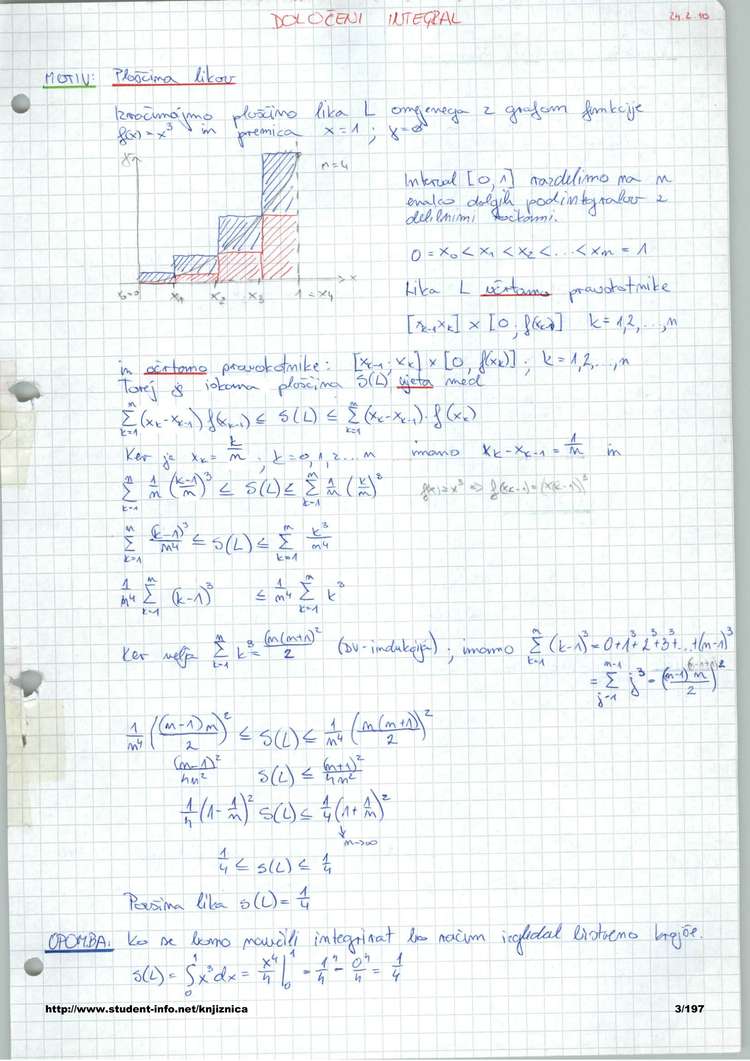 DOLOČENI INTEGRAL
24.2.10
MOTIV: Ploščina likov
Izračunajmo ploščino lika L omejenega z grafom funkcije
f(x) = x³ in premica x=1; y=0
y
n=4
x₁ x₂ x₃ 1=x₄ x
Interval [0,1] razdelimo na n
enako dolgih podintegralov z
delilnimi točkami.
0 = x₀ < x₁ < x₂ < ... < xₙ = 1
Lika L včrtamo pravokotnike
[xₖ₋₁ xₖ] × [0, f(xₖ₋₁)] k=1,2,...,n
in očrtamo pravokotnike: [xₖ₋₁; xₖ] × [0, f(xₖ)]; k=1,2,...,n
Torej je iskana ploščina S(L) ujeta med
∑ₖ₌₁ⁿ (xₖ-xₖ₋₁) f(xₖ₋₁) ≤ S(L) ≤ ∑ₖ₌₁ⁿ (xₖ-xₖ₋₁)·f(xₖ)
Ker je xₖ = k/n, k=0,1,2...n imamo xₖ-xₖ₋₁ = 1/n in
∑ₖ₌₁ⁿ 1/n ((k-1)/n)³ ≤ S(L) ≤ ∑ₖ₌₁ⁿ 1/n (k/n)³ f(x)=x³ ⇒ f(xₖ₋₁)=(xₖ₋₁)³
∑ₖ₌₁ⁿ (k-1)³/n⁴ ≤ S(L) ≤ ∑ₖ₌₁ⁿ k³/n⁴
1/n⁴ ∑ₖ₌₁ⁿ (k-1)³ ≤ 1/n⁴ ∑ₖ₌₁ⁿ k³
Ker velja ∑ₖ₌₁ⁿ k³ = (n(n+1)/2)² (DV-indukcija); imamo ∑ₖ₌₁ⁿ (k-1)³ = 0+1³+2³+3³+...+(n-1)³
= ∑ⱼ₌₁ⁿ⁻¹ j³ = ((n-1)n/2)²
1/n⁴ ((n-1)n/2)² ≤ S(L) ≤ 1/n⁴ (n(n+1)/2)²
(n-1)²/4n² S(L) ≤ (n+1)²/4n²
1/4 (1-1/n)² S(L) ≤ 1/4 (1+1/n)²
↓ n→∞
1/4 ≤ S(L) ≤ 1/4
Površina lika S(L) = 1/4
OPOMBA: Ko se bomo naučili integrirat bo račun izgledal bistveno krajše.
S(L) = ∫₀¹ x³dx = x⁴/4 |₀¹ = 1⁴/4 - 0⁴/4 = 1/4
http://www.student-info.net/knjiznica
3/197